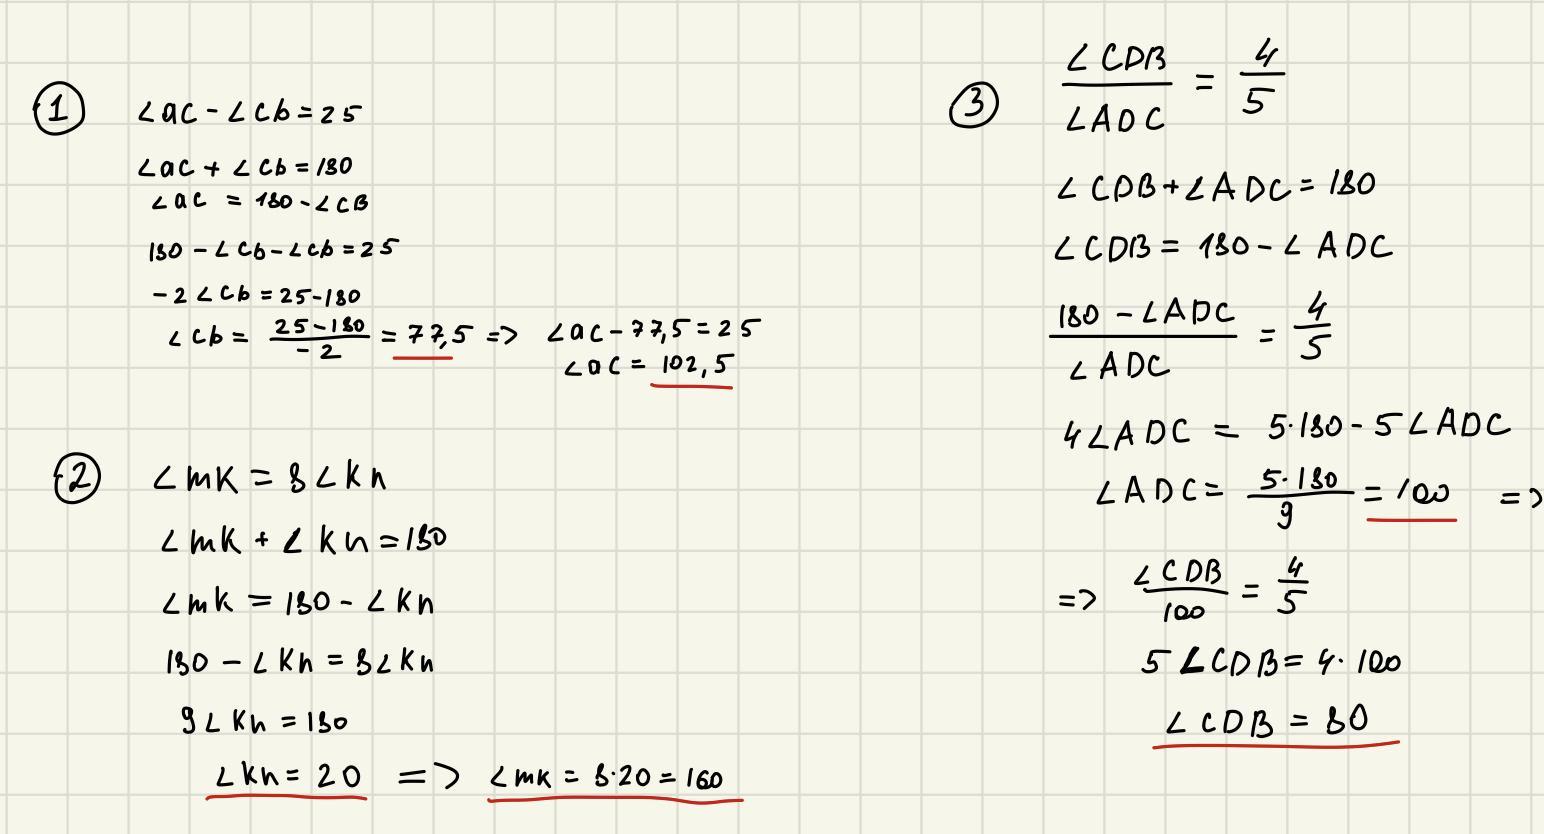 1
∠ac - ∠cb = 25
∠ac + ∠cb = 180
∠ac = 180 - ∠CB
180 - ∠cb - ∠cb = 25
-2∠cb = 25-180
∠cb = (25-180)/(-2) = 77,5 => ∠ac - 77,5 = 25
∠ac = 102,5
2
∠mk = 8∠kn
∠mk + ∠kn = 180
∠mk = 180 - ∠kn
180 - ∠kn = 8∠kn
9∠kn = 180
∠kn = 20 => ∠mk = 8·20 = 160
3
∠CDB/∠ADC = 4/5
∠CDB + ∠ADC = 180
∠CDB = 180 - ∠ADC
(180 - ∠ADC)/∠ADC = 4/5
4∠ADC = 5·180 - 5∠ADC
∠ADC = (5·180)/9 = 100 =>
=> ∠CDB/100 = 4/5
5∠CDB = 4·100
∠CDB = 80